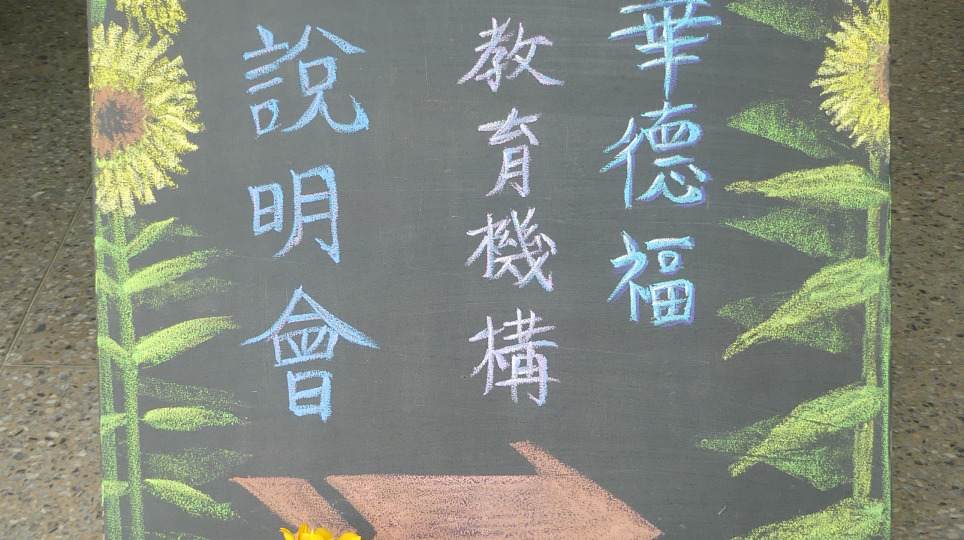 華德福
教育機構
說明會